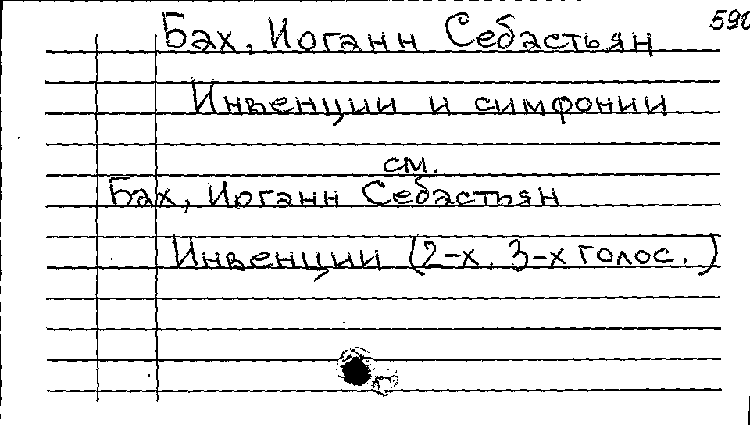 Бах, Иоганн Себастьян
Инвенции и симфонии
см.
Бах, Иоганн Себастьян
Инвенции (2-х, 3-х голос.)